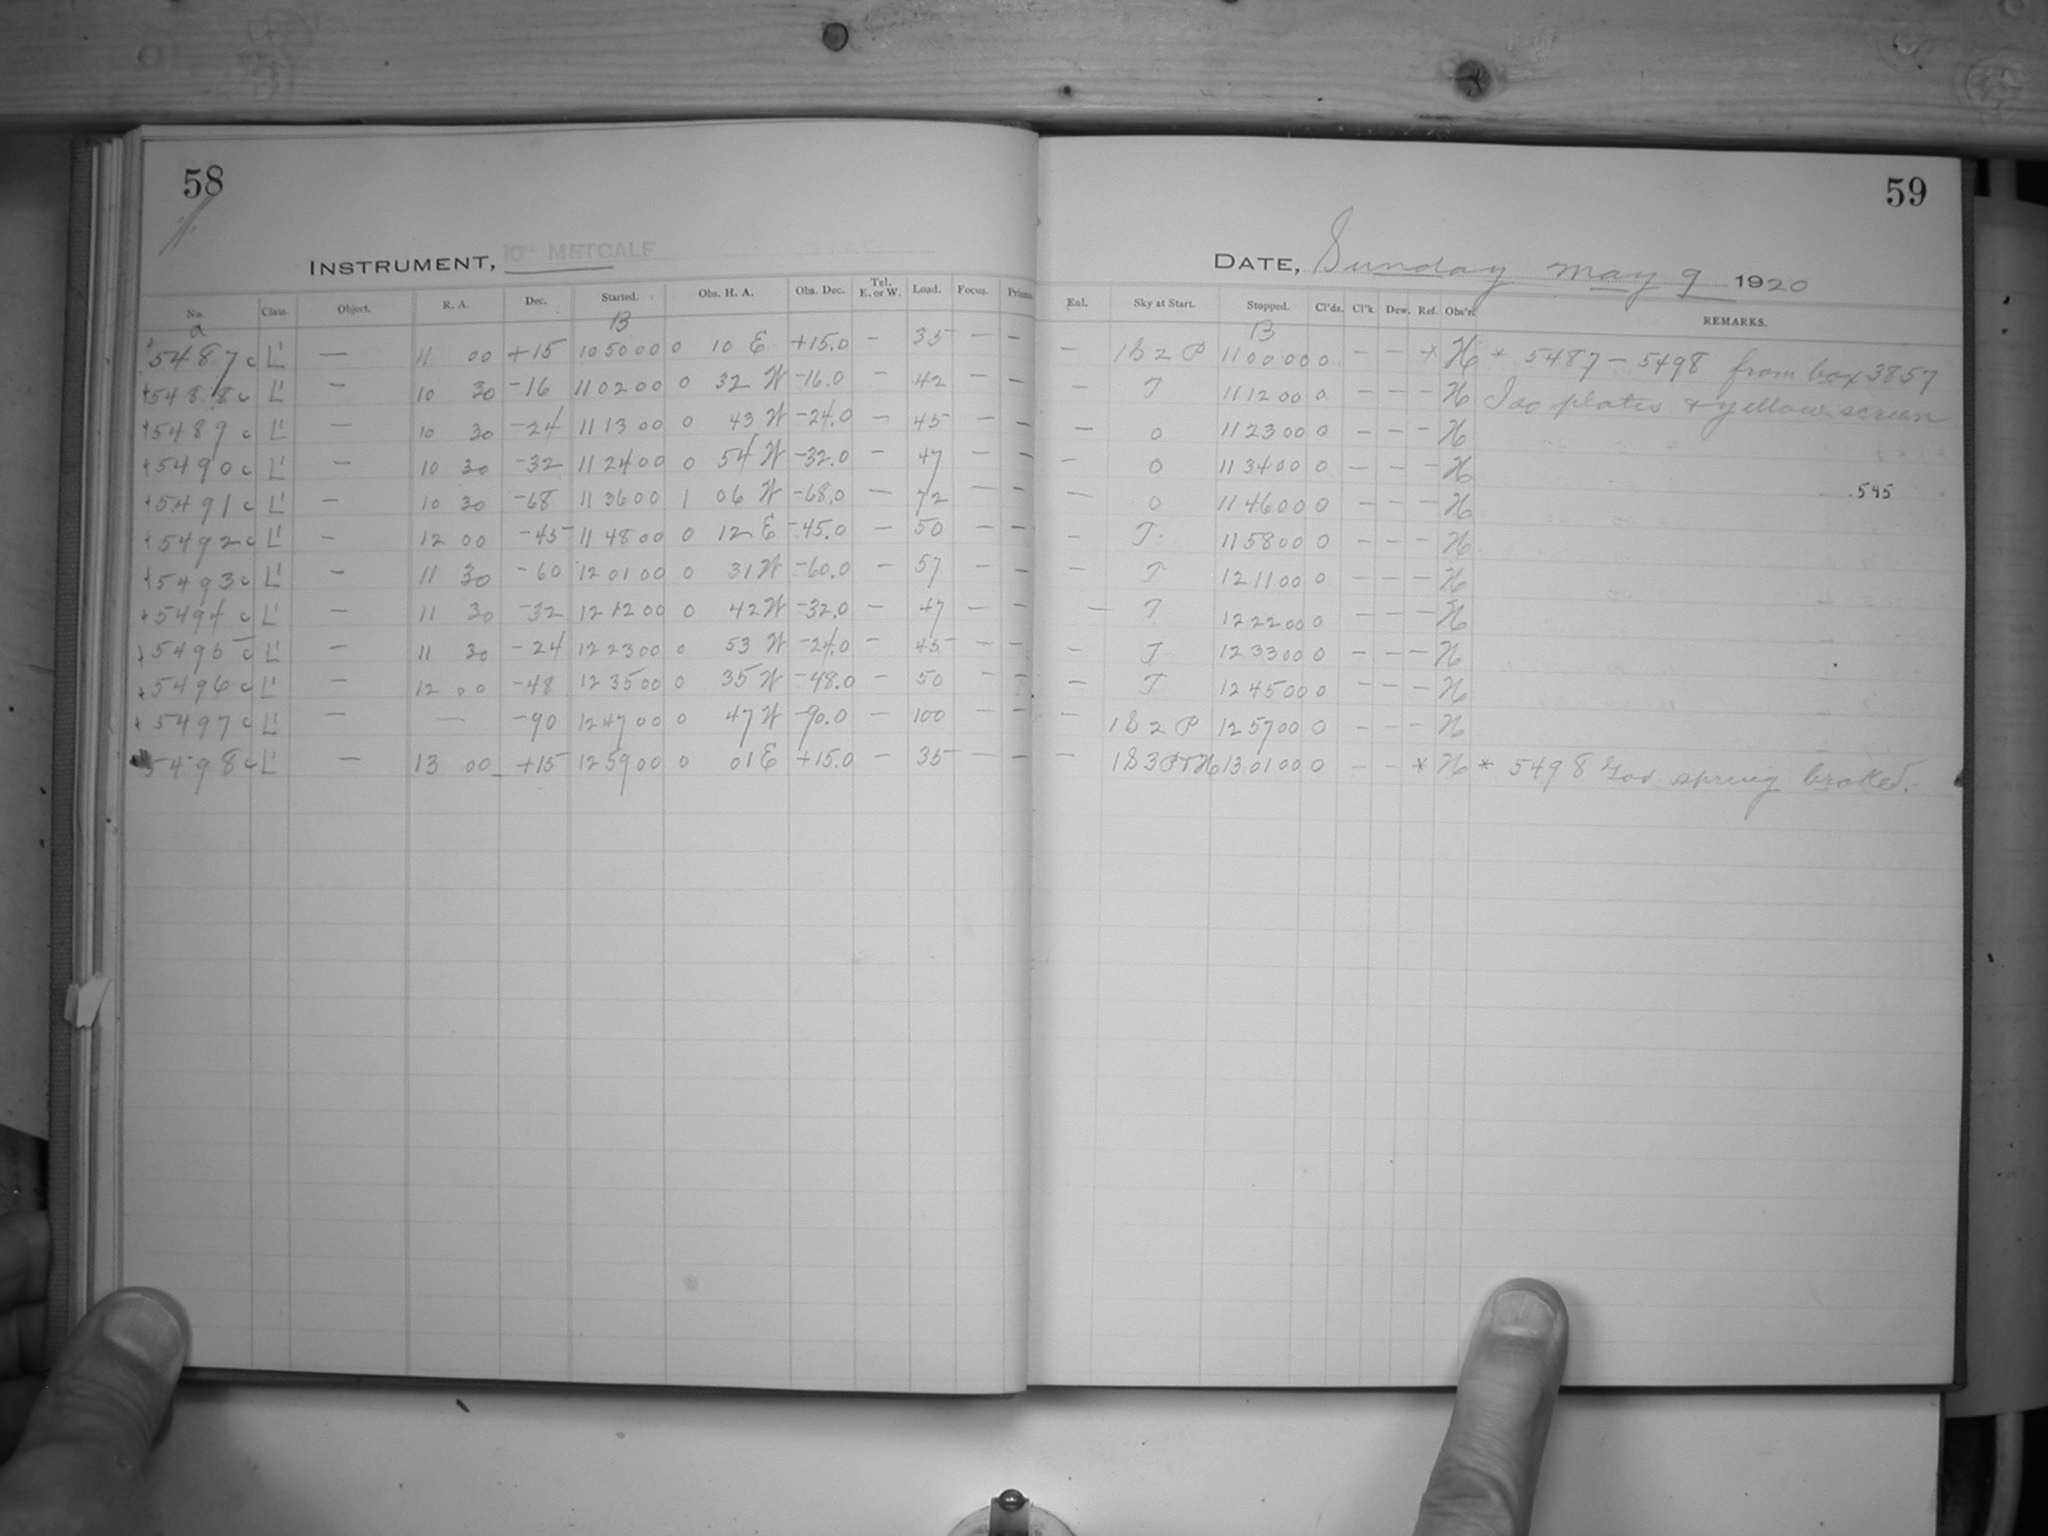 58
INSTRUMENT, 10" METCALF
No. Class. Object. R. A. Dec. Started. Obs. H. A. Obs. Dec. Tel. E. or W. Load. Focus. Prisms
a B
5487 c L' — 11 00 +15 10 50 00 0 10 E +15.0 — 35 — —
5488 c L' — 10 30 -16 11 02 00 0 32 W -16.0 — 42 — —
5489 c L' — 10 30 -24 11 13 00 0 43 W -24.0 — 45 — —
5490 c L' — 10 30 -32 11 24 00 0 54 W -32.0 — 47 — —
5491 c L' — 10 30 -68 11 36 00 1 06 W -68.0 — 72 — —
5492 c L' — 12 00 -45 11 48 00 0 12 E -45.0 — 50 — —
5493 c L' — 11 30 -60 12 01 00 0 31 W -60.0 — 57 — —
5494 c L' — 11 30 -32 12 12 00 0 42 W -32.0 — 47 — —
5495 c L' — 11 30 -24 12 23 00 0 53 W -24.0 — 45 — —
5496 c L' — 12 00 -48 12 35 00 0 35 W -48.0 — 50 — —
5497 c L' — — -90 12 47 00 0 47 W -90.0 — 100 — —
5498 c L' — 13 00 +15 12 59 00 0 01 E +15.0 — 35 — —
59
DATE, Sunday May 9 1920
Enl. Sky at Start. Stopped. Cl'ds. Cl'k Dew. Ref. Obs'r. REMARKS.
B
— 1S2P 11 00 00 0 — — * H * 5487 - 5498 from box 3857
— T 11 12 00 0 — — — H Iso plates + yellow screen
— 0 11 23 00 0 — — — H
— 0 11 34 00 0 — — — H
— 0 11 46 00 0 — — — H .595
— T 11 58 00 0 — — — H
— T 12 11 00 0 — — — H
— T 12 22 00 0 — — — H
— T 12 33 00 0 — — — H
— T 12 45 00 0 — — — H
— 1S2P 12 57 00 0 — — — H
— 1S3P+H 13 01 00 0 — — * H * 5498 Gov spring broked.